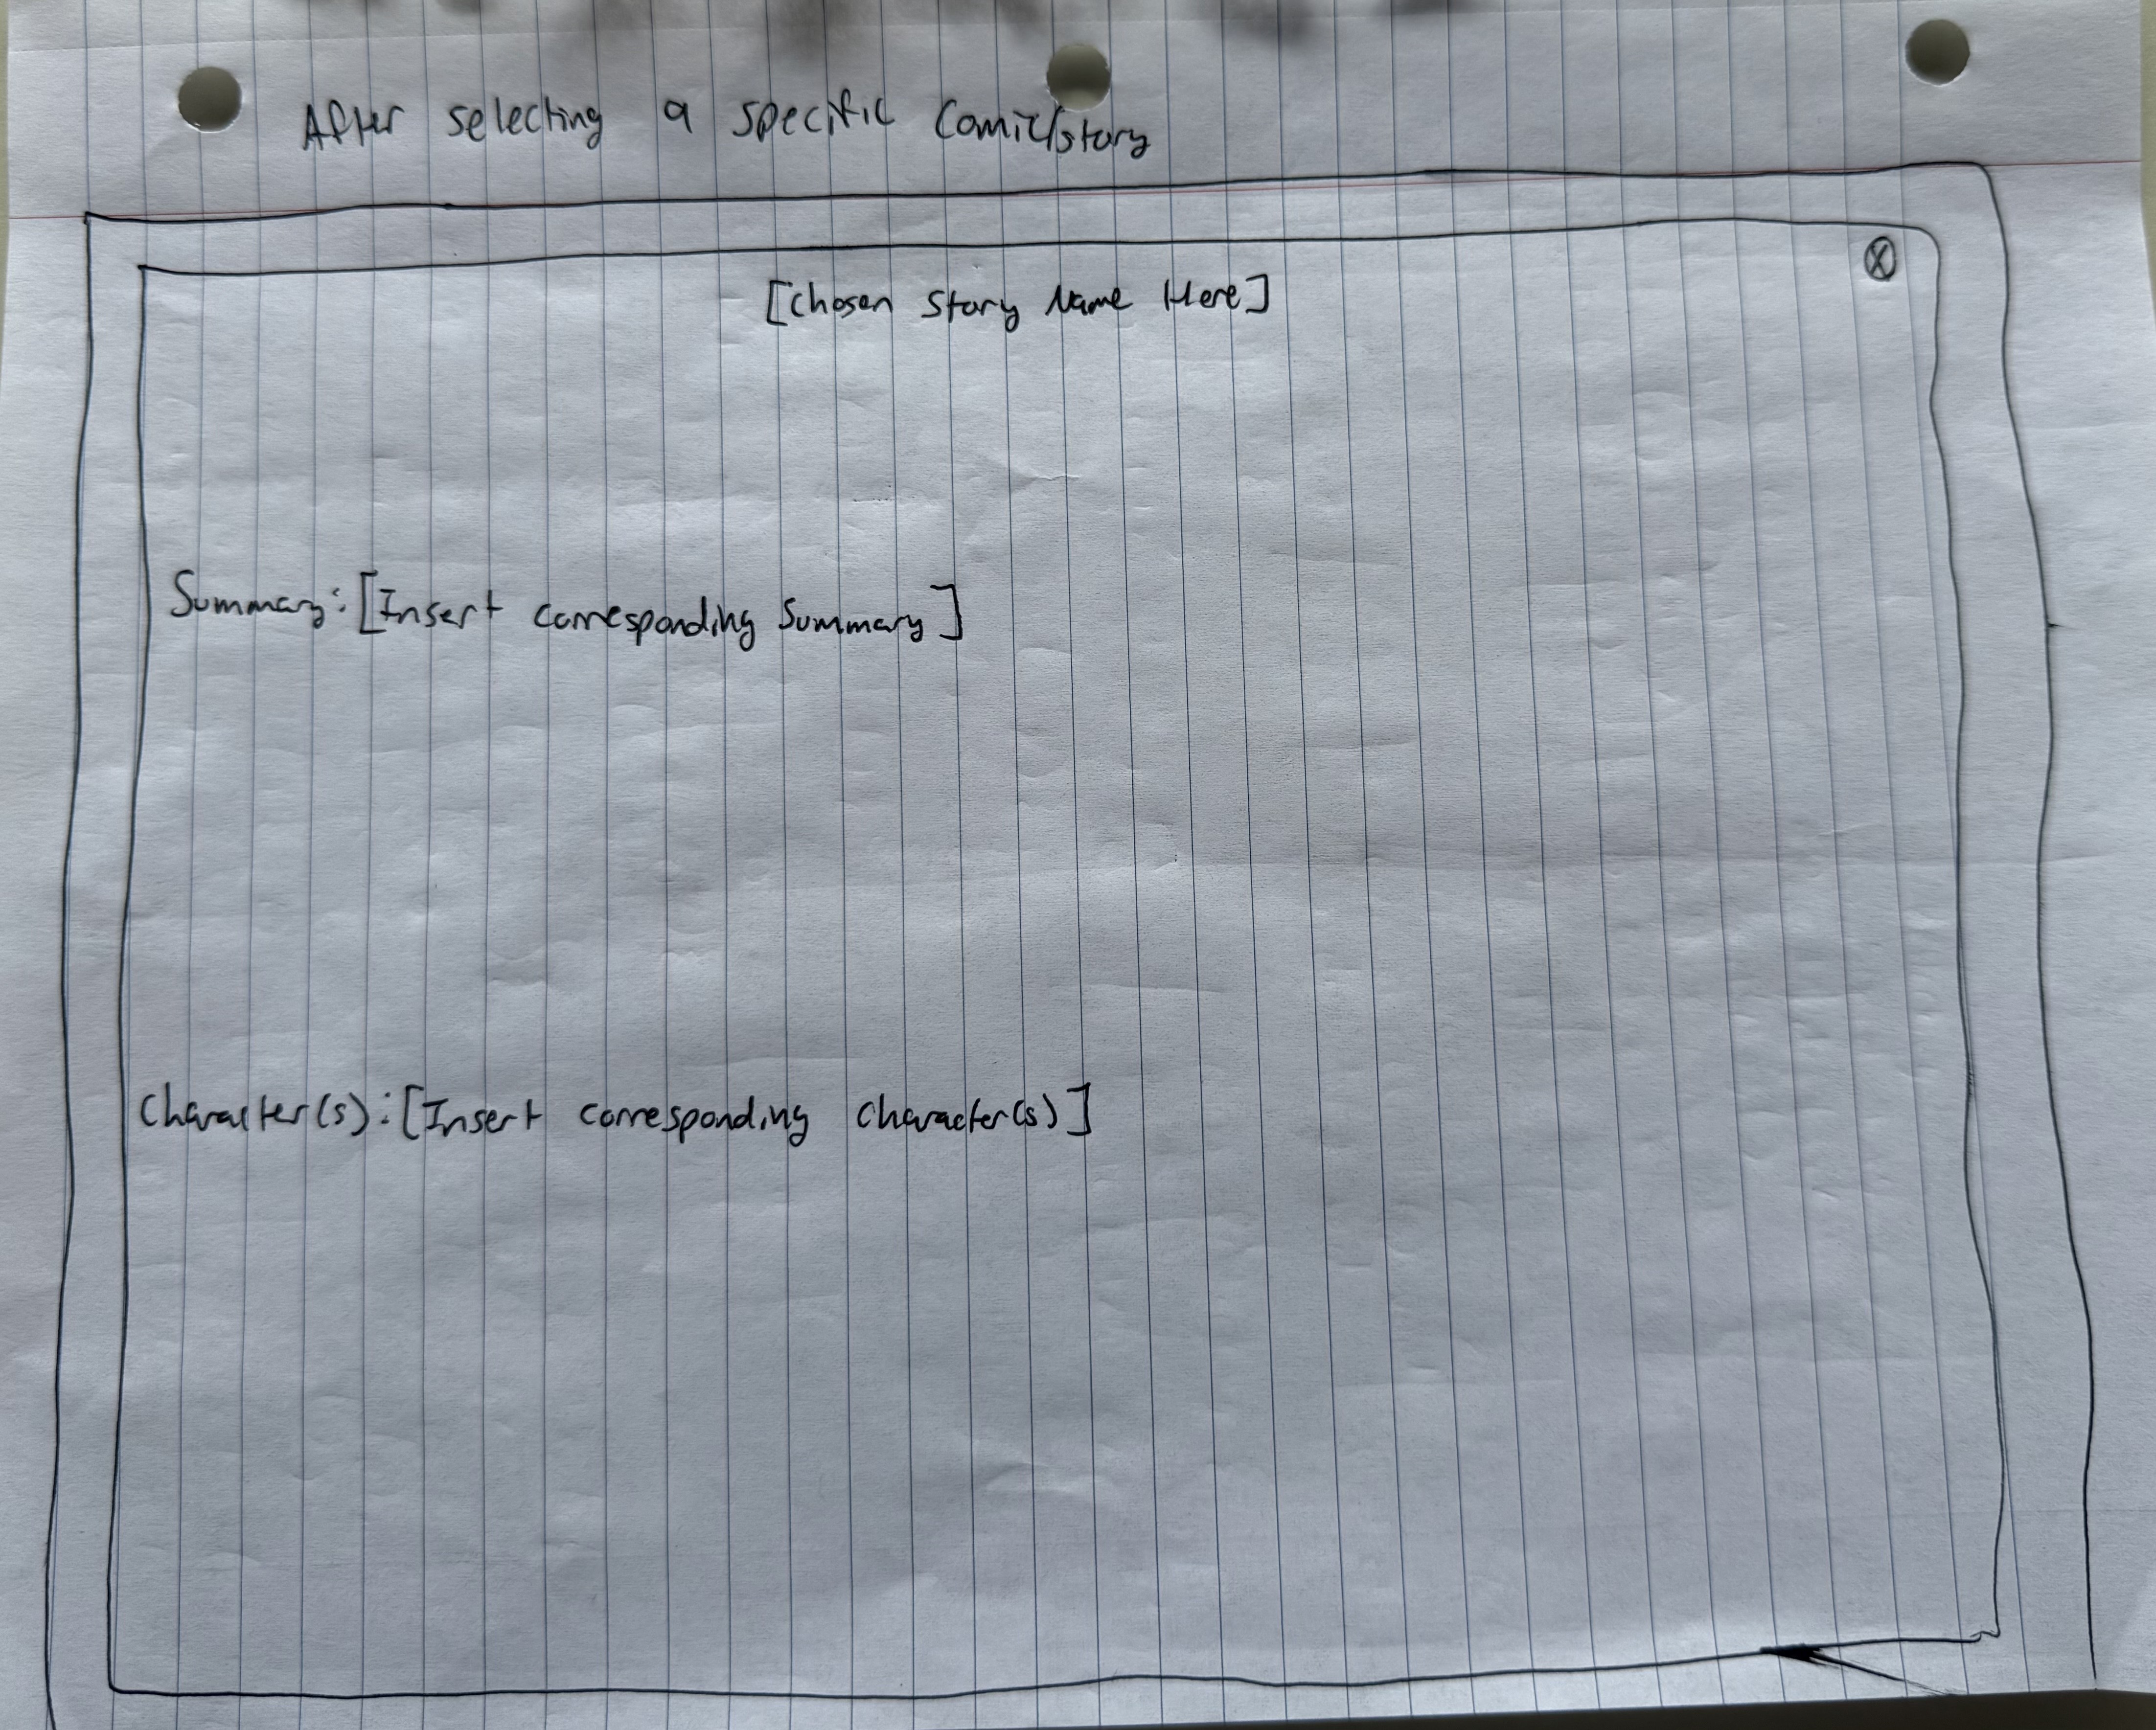 After selecting a specific Comic/story
[Chosen Story Name Here]
X
Summary: [Insert corresponding Summary]
Character(s): [Insert corresponding Character(s)]